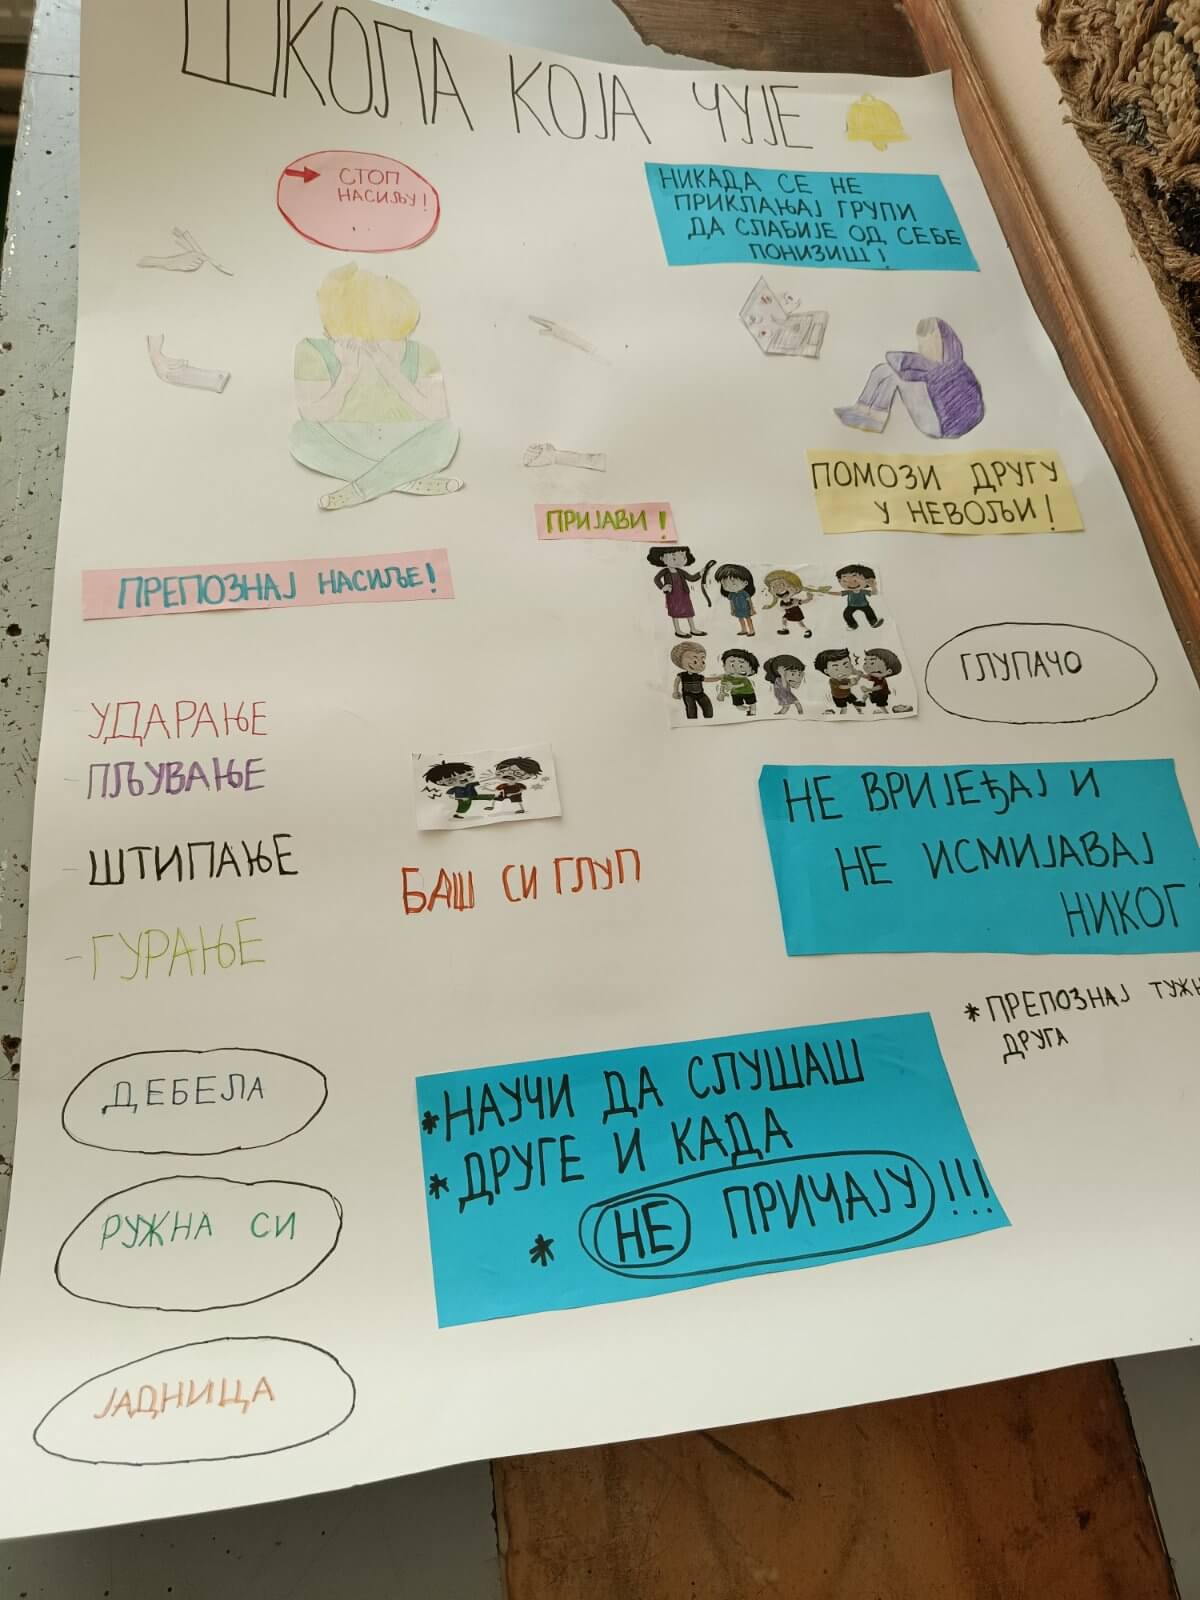 ШКОЛА КОЈА ЧУЈЕ
СТОП
НАСИЉУ!
НИКАДА СЕ НЕ
ПРИКЛАЊАЈ ГРУПИ
ДА СЛАБИЈЕ ОД СЕБЕ
ПОНИЗИШ!
ПОМОЗИ ДРУГУ
У НЕВОЉИ!
ПРИЈАВИ!
ПРЕПОЗНАЈ НАСИЉЕ!
ГЛУПАЧО
УДАРАЊЕ
- ПЉУВАЊЕ
- ШТИПАЊЕ
- ГУРАЊЕ
БАШ СИ ГЛУП
НЕ ВРИЈЕЂАЈ И
НЕ ИСМИЈАВАЈ
НИКОГ
* ПРЕПОЗНАЈ ТУЖН
ДРУГА
ДЕБЕЛА
РУЖНА СИ
ЈАДНИЦА
* НАУЧИ ДА СЛУШАШ
* ДРУГЕ И КАДА
* НЕ ПРИЧАЈУ!!!